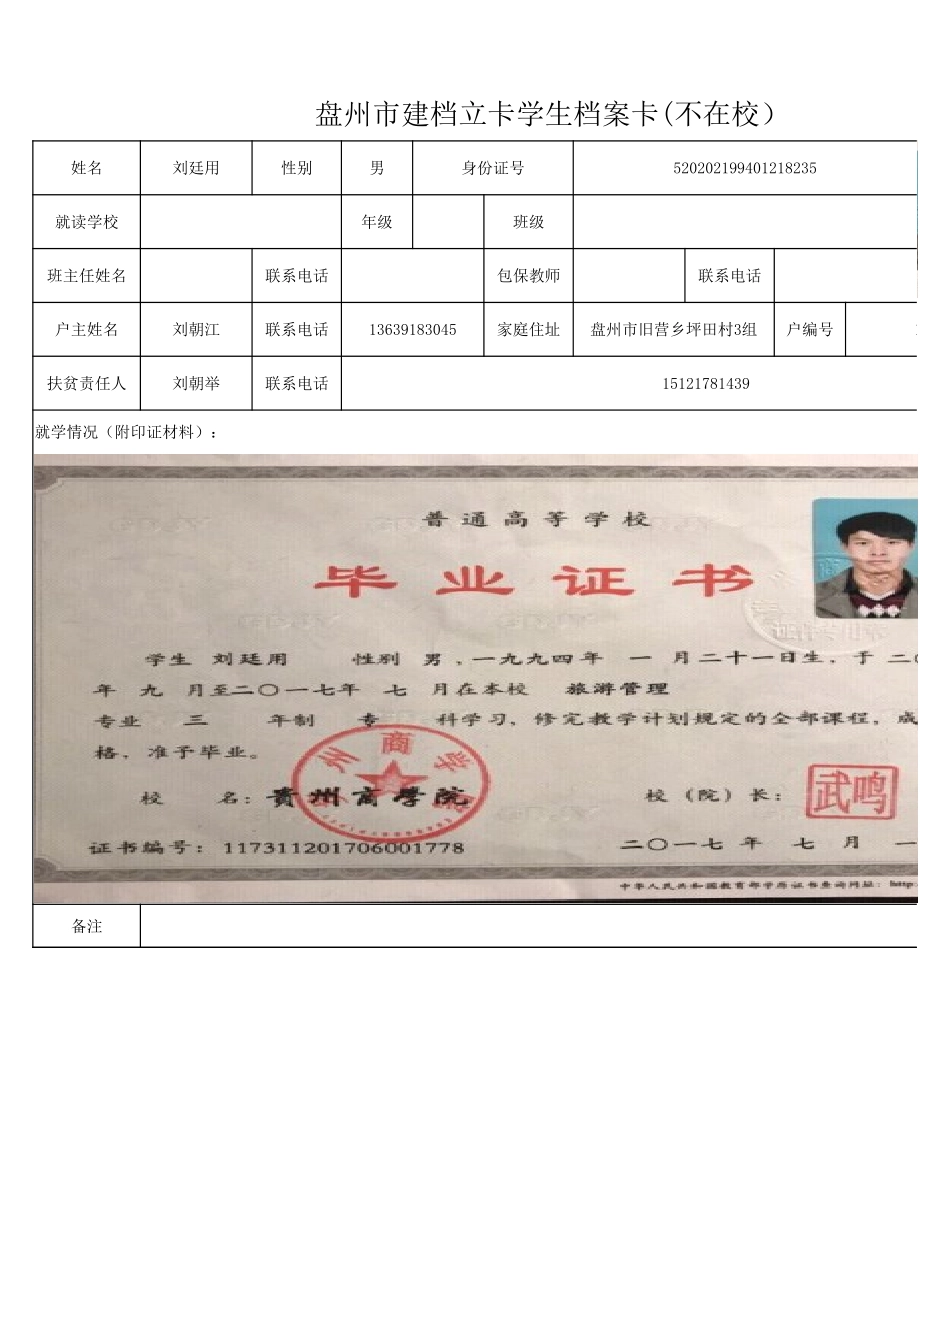 盘州市建档立卡学生档案卡(不在校）
姓名 刘廷用 性别 男 身份证号 520202199401218235
就读学校 年级 班级
班主任姓名 联系电话 包保教师 联系电话
户主姓名 刘朝江 联系电话 13639183045 家庭住址 盘州市旧营乡坪田村3组 户编号
扶贫责任人 刘朝举 联系电话 15121781439
就学情况（附印证材料）:
普通高等学校
毕业证书
学生 刘廷用 性别 男，一九九四年 一 月二十一日生，于 二〇
年 九 月至二〇一七年 七 月在本校 旅游管理
专业 三 年制 专 科学习，修完教学计划规定的全部课程，成
格，准予毕业。
校 名: 贵州商学院 校（院）长:
武鸣
证书编号: 117311201706001778 二〇一七 年 七 月 一
中华人民共和国教育部学历证书查询网址: http:
备注